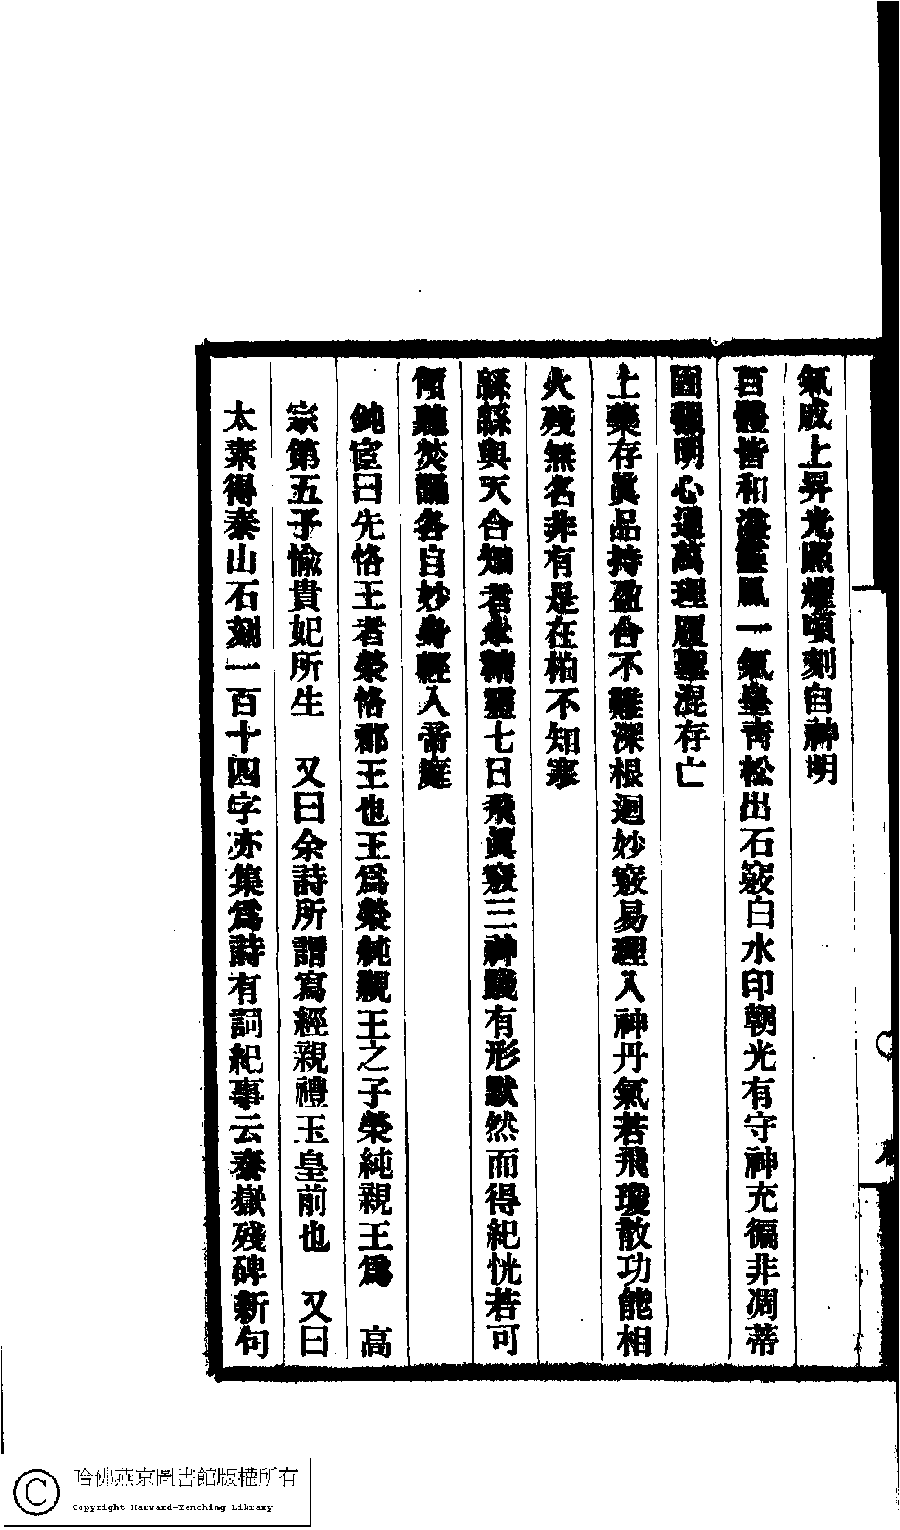 氣成上昇光照耀頃刻自神明
百體皆和瀣靈風一氣臺靑松出石竅白水印朝光有守神充徧非凋蒂
固觀明心通萬理履混存亡
上藥存眞品持盈合不難深根迴妙竅易理入神丹氣若飛瓊散功能相
火殘無名非有是在柏不知寒
緜緜與天合烟者水精靈七日飛眞竅三神踐有形默然而得紀恍若可
傾聽焚誦各自妙身輕入帝庭
鈍宧曰先恪王者榮恪郡王也王爲榮純親王之子榮純親王爲 高
宗第五子愉貴妃所生 又曰余詩所謂寫經親禮玉皇前也 又曰
太素得泰山石刻一百十四字亦集爲詩有詞紀事云泰嶽殘碑新句
哈佛燕京圖書館版權所有
Copyright Harvard-Yenching Library